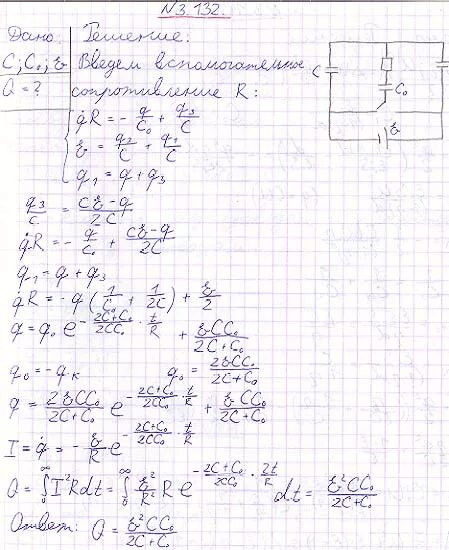 №3.132.
Дано: Решение:
C; C₀; ℰ Введем вспомогательное
Q = ? сопротивление R:
q̇R = - q/C₀ + q₃/C
ℰ = q₃/C + q₁/C
q₁ = q + q₃
q₃/C = (Cℰ - q)/2C
q̇R = - q/C₀ + (Cℰ - q)/2C
q₁ = q + q₃
q̇R = -q (1/C₀ + 1/2C) + ℰ/2
q = q₀ e^(-(2C+C₀)/(2CC₀) · t/R) + ℰCC₀/(2C+C₀)
q₀ = -qк q₀ = 2ℰCC₀/(2C+C₀)
q = 2ℰCC₀/(2C+C₀) e^(-(2C+C₀)/(2CC₀) · t/R) + ℰCC₀/(2C+C₀)
I = q̇ = - ℰ/R e^(-(2C+C₀)/(2CC₀) · t/R)
Q = ∫₀^∞ I²Rdt = ∫₀^∞ ℰ²/R² R e^(-(2C+C₀)/(2CC₀) · 2t/R) dt = ℰ²CC₀/(2C+C₀)
Ответ: Q = ℰ²CC₀/(2C+C₀)
C
C₀
ℰ